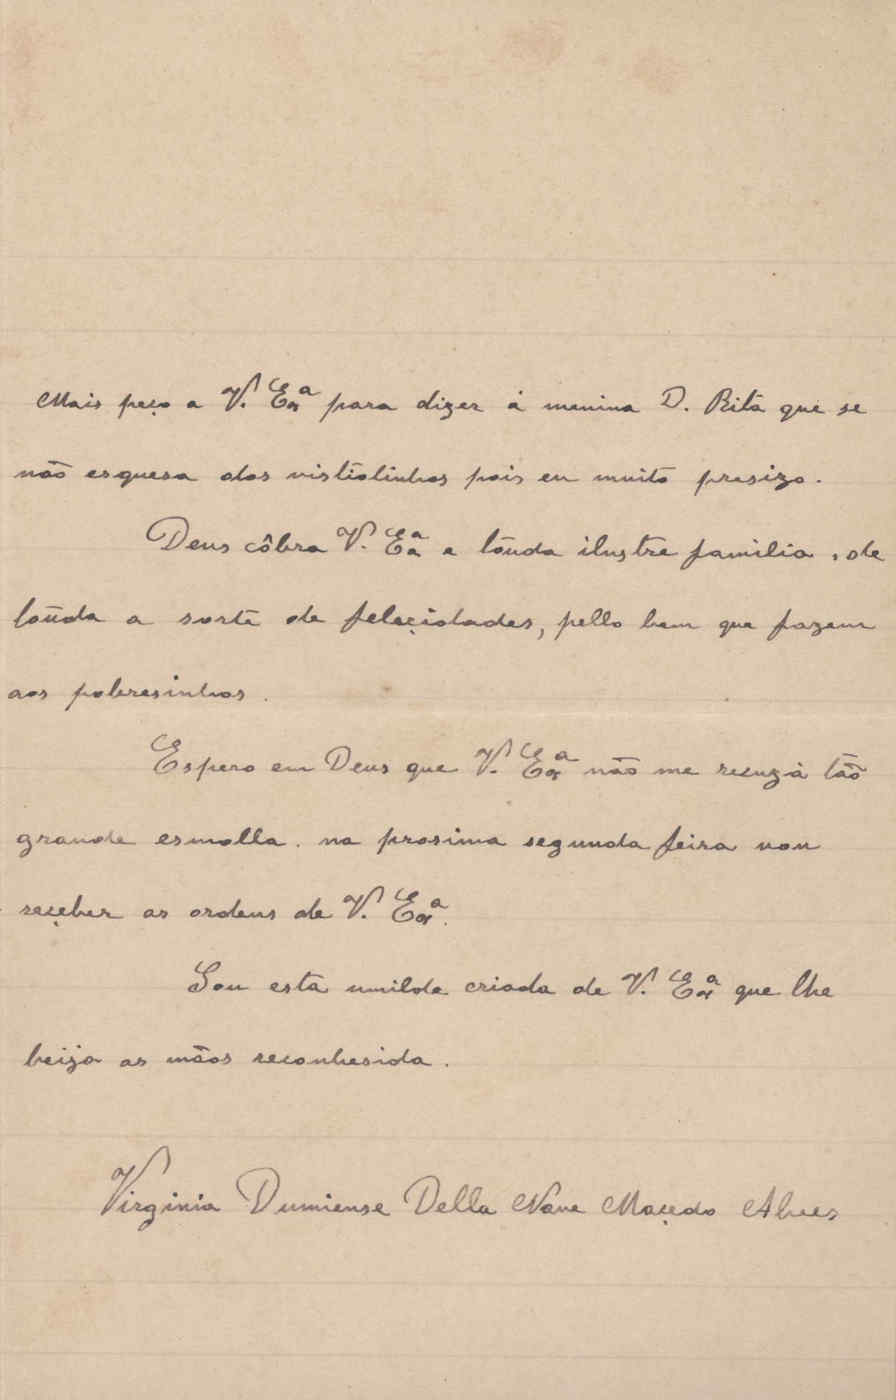 Mais peço a V. Exª para dizer á menina D. Rita que se
não esquesa dos vistidinhos pois eu muito presizo.
Deus côbra V. Exª e tôuda ilustre familia, de
tôuda a sorte de feleçidades, pello bem que fazem
aos pobresinhos.
Espero em Deus que V. Exª não me recuzá tão
grande esmolla. na prosima segunda feira vou
reçeber as ordens de V. Exª.
Sou esta umilde criada de V. Exª que lhe
beija as mãos reconhesida.
Virginia Dumiense Della Nave Maçedo Alves